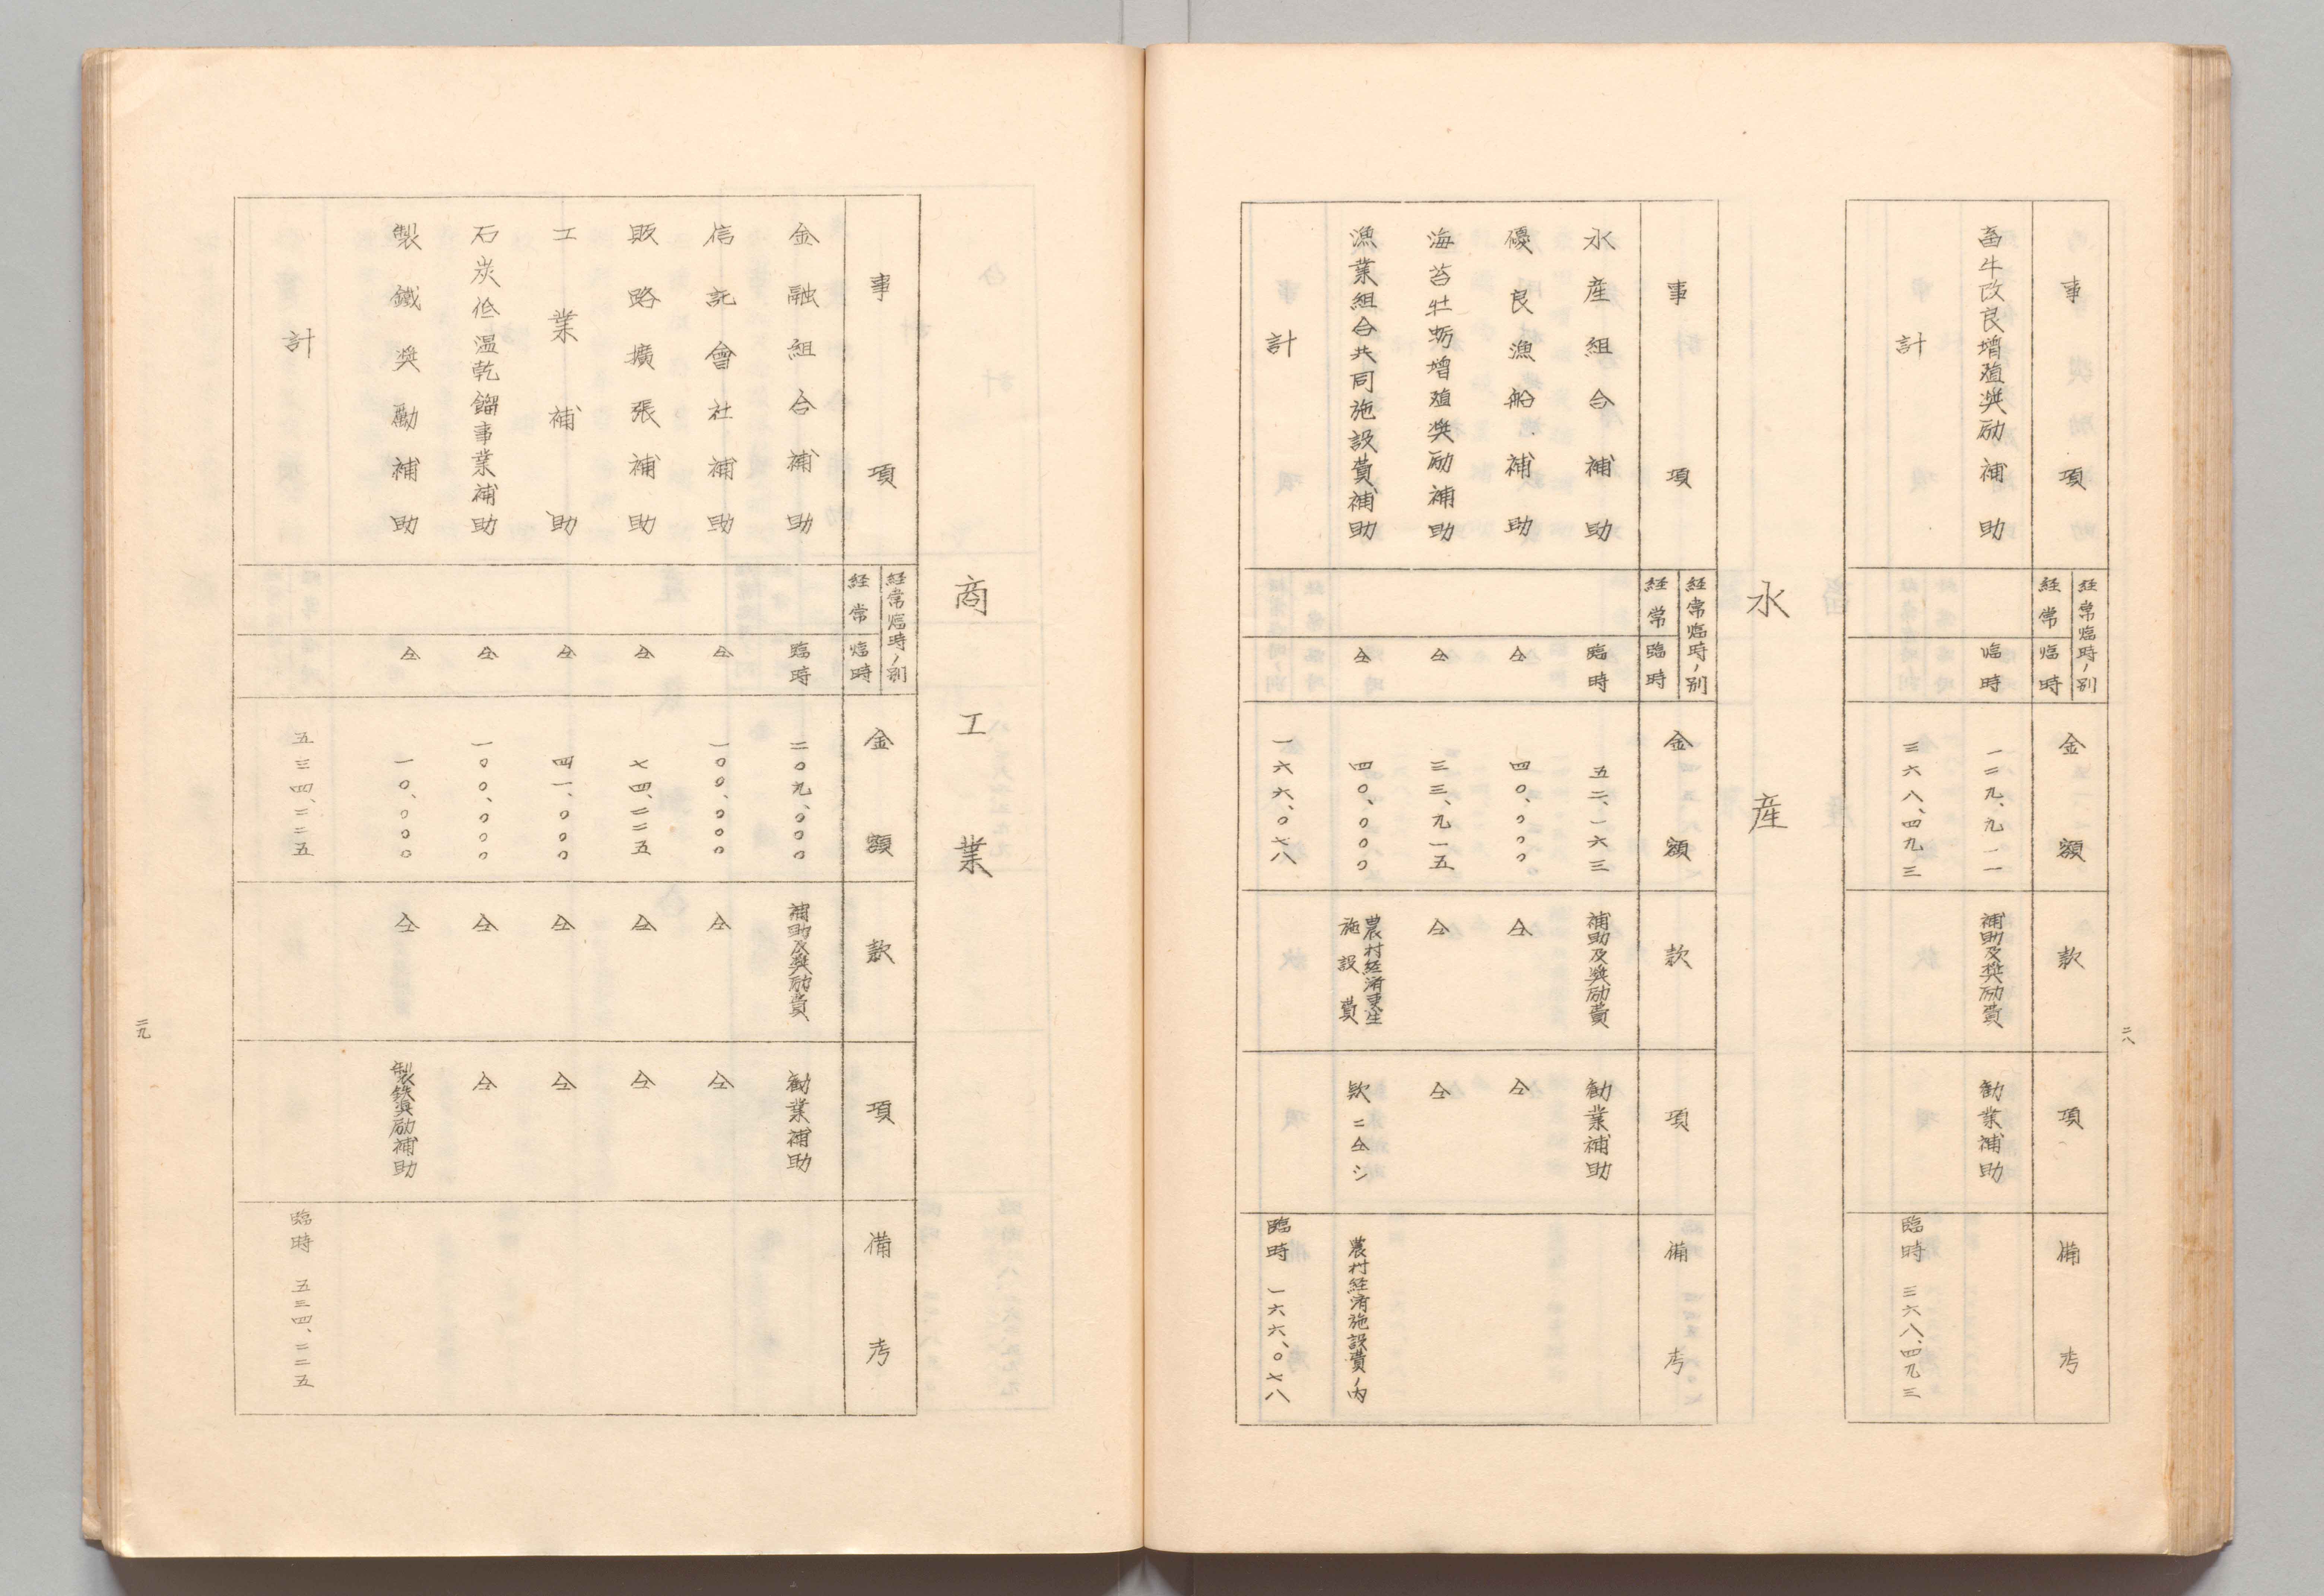 二八
事項
経常臨時ノ別
経常
臨時
金額
款
項
備考
畜牛改良増殖奨励補助
臨時
一二九、九一一
補助及奨励費
勧業補助
計
三六八、四九三
臨時 三六八、四九三
水産
事項
経常臨時ノ別
経常
臨時
金額
款
項
備考
水産組合補助
臨時
五二、一六三
補助及奨励費
勧業補助
優良漁船補助
仝
四〇、〇〇〇
仝
仝
海苔牡蛎増殖奨励補助
仝
三三、九一五
仝
仝
漁業組合共同施設費補助
仝
四〇、〇〇〇
農村経済更生
施設費
款ニ仝シ
農村経済施設費ノ内
計
一六六、〇七八
臨時 一六六、〇七八
商工業
事項
経常臨時ノ別
経常
臨時
金額
款
項
備考
金融組合補助
臨時
二〇九、〇〇〇
補助及奨励費
勧業補助
信託會社補助
仝
一〇〇、〇〇〇
仝
仝
販路擴張補助
仝
七四、二二五
仝
仝
工業補助
仝
四一、〇〇〇
仝
仝
石炭低温乾餾事業補助
仝
一〇〇、〇〇〇
仝
仝
製鐵奨勵補助
仝
一〇、〇〇〇
仝
製鉄奨励補助
計
五三四、二二五
臨時 五三四、二二五
二九